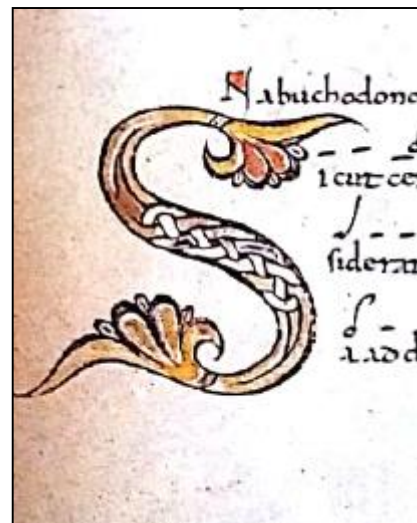 Nabuchodono
Sicut ce
sidera
a ad